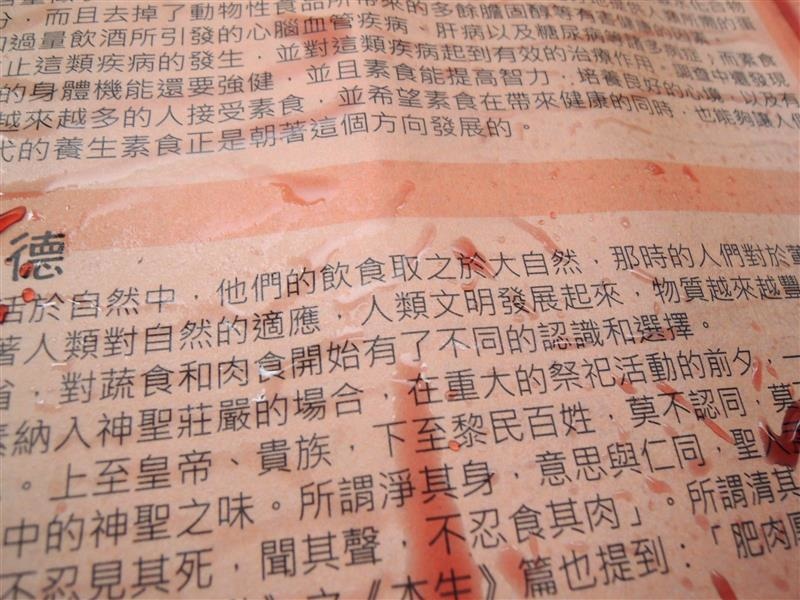 而且去掉了動物性食品所帶來的多餘膽固醇等有害健康的因素
過量飲酒所引發的心腦血管疾病、肝病以及糖尿病等諸多病症；而素食
止這類疾病的發生，並對這類疾病起到有效的治療作用。調查中還發現
的身體機能還要強健，並且素食能提高智力，培養良好的心境，以及有
越來越多的人接受素食，並希望素食在帶來健康的同時，也能夠讓人們
代的養生素食正是朝著這個方向發展的。
德
活於自然中，他們的飲食取之於大自然，那時的人們對於
著人類對自然的適應，人類文明發展起來，物質越來越豐
，對蔬食和肉食開始有了不同的認識和選擇。
納入神聖莊嚴的場合，在重大的祭祀活動的前夕，一
。上至皇帝、貴族，下至黎民百姓，莫不認同，莫
中的神聖之味。所謂淨其身，意思與仁同，聖人
不忍見其死，聞其聲，不忍食其肉」。所謂清其
之《本生》篇也提到：「肥肉厚